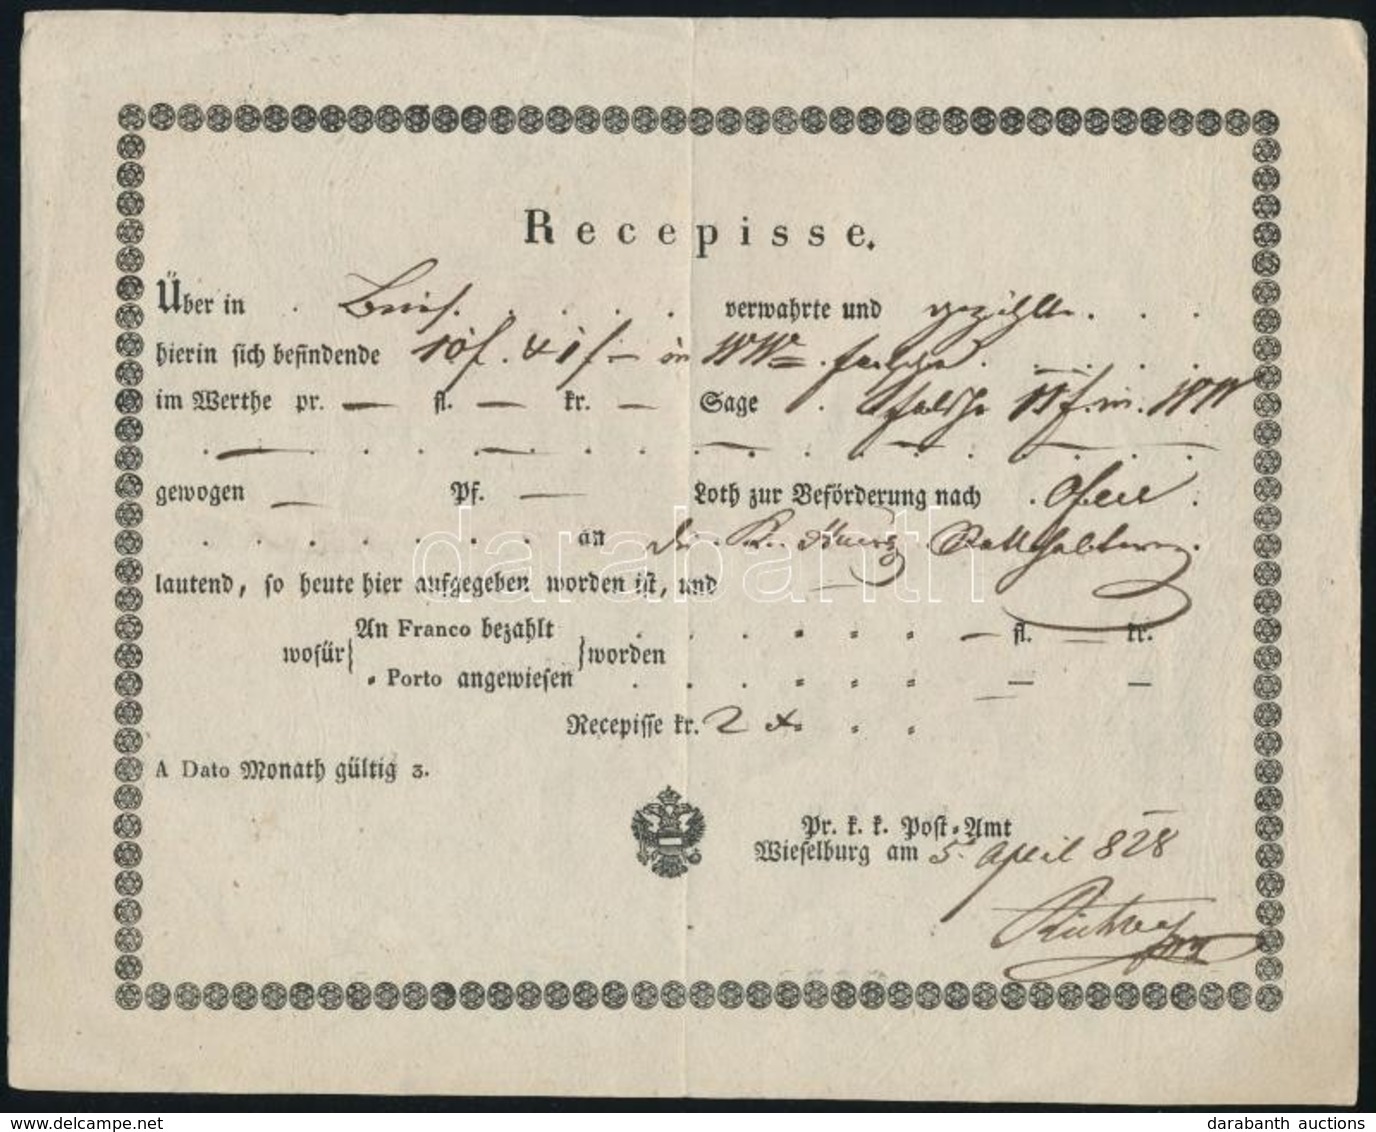 Recepisse.
Über in . Brief . . . . . verwahrte und gezählte . . .
hierin sich befindende 10 f. & 1 f – in WW falsche . . . . .
im Werthe pr. — fl. — kr. — Sage . falsche 11 f. in. WW
gewogen — Pf. — Loth zur Beförderung nach . Ofen .
. . . . . . . an die K. Statthalterey.
lautend, so heute hier aufgegeben worden ist, und —
wofür { An Franco bezahlt } worden . . . . . . — fl. — kr.
„ Porto angewiesen . . . . . . — —
Recepisse kr. 2 x . . .
A Dato Monath gültig 3.
Pr. k. k. Post-Amt
Wieselburg am 5. April 828
darabanth
darabanth auctions